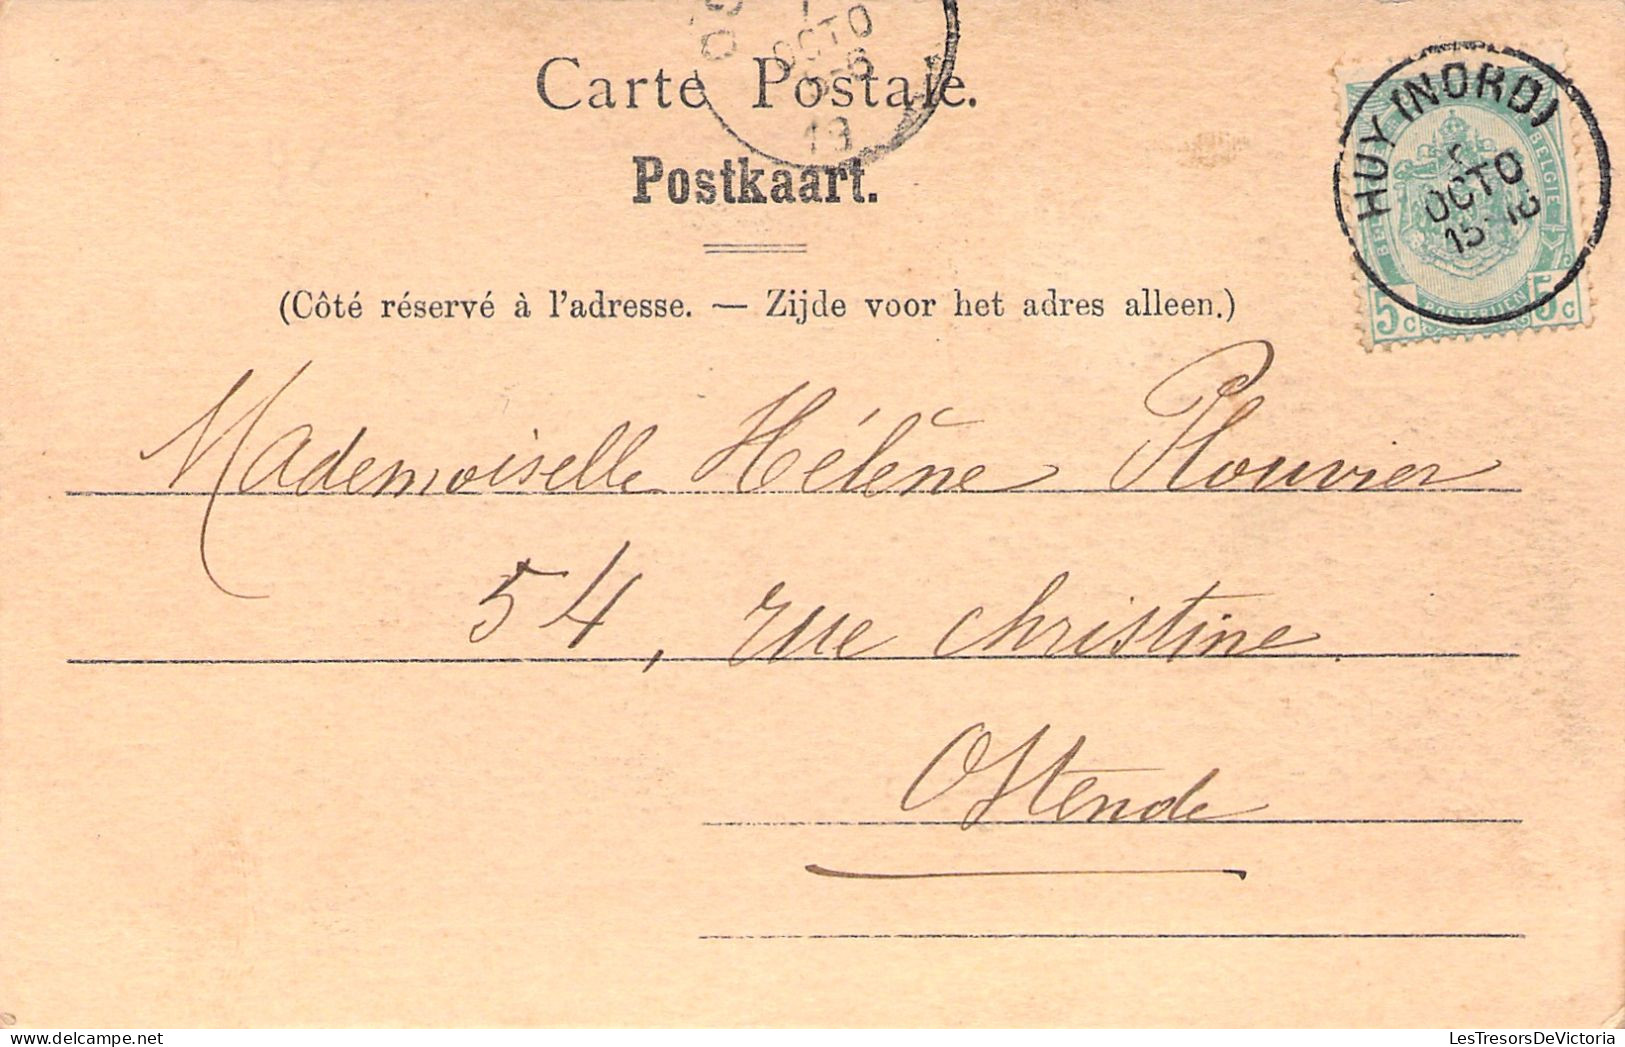 OCTO
Carte Postale.
Postkaart.
(Côté réservé à l'adresse. — Zijde voor het adres alleen.)
HUY (NORD)
OCTO
BELGIE
5c 5c
Mademoiselle Hélène Plouvier
54, rue Christine.
Ostende
LesTresorsDeVictoria